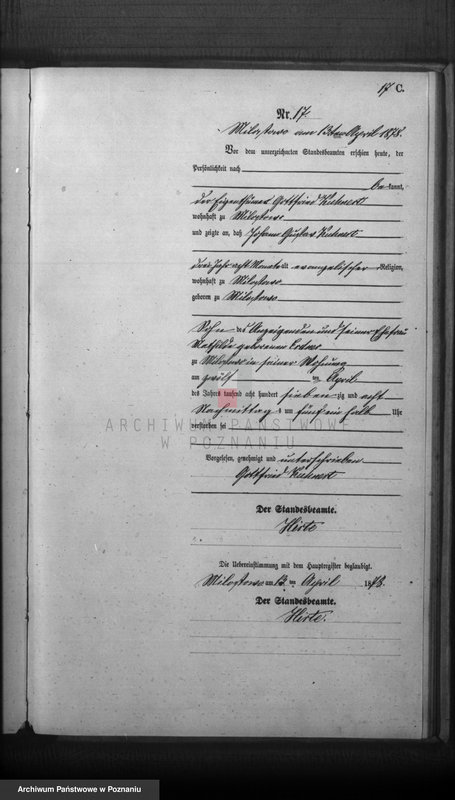 17 C.
Nr. 17.
Milostowo am 13ten April 1878.
Vor dem unterzeichneten Standesbeamten erschien heute, der
Persönlichkeit nach
be kannt,
der Eigenthümer Gottfried Kuhnert
wohnhaft zu Milostowo
und zeigte an, daß Johann Gustav Kuhnert
drei Jahr acht Monate alt evangelischer Religion,
wohnhaft zu Milostowo
geboren zu Milostowo
Sohn des Anzeigenden und seiner Ehefrau
Mathilde geborenen
zu Milostowo in seiner Wohnung
am zwölf ten April
des Jahres tausend acht hundert sieben zig und acht
Nachmittags um fünf ein halb Uhr
verstorben sei
ARCHIWUM PAŃSTWOWE
W POZNANIU
Vorgelesen, genehmigt und unterschrieben
Gottfried Kuhnert
Der Standesbeamte.
Hirte
Die Uebereinstimmung mit dem Hauptregister beglaubigt.
Milostowo am 13 ten April 1878.
Der Standesbeamte.
Hirte.
Archiwum Państwowe w Poznaniu